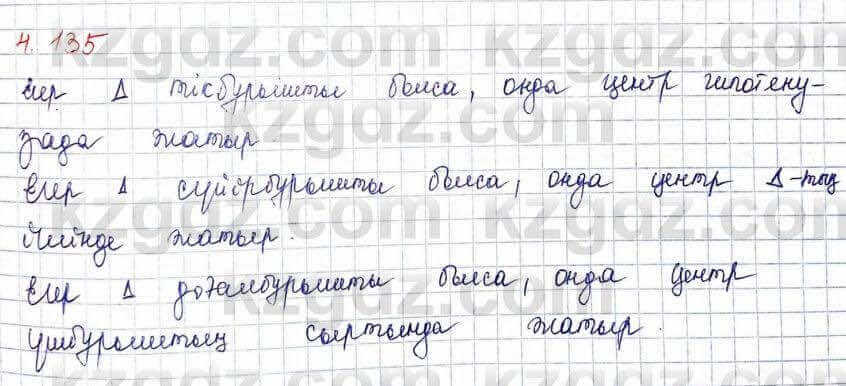 4. 135
егер Δ тікбұрышты болса, онда центр гипотену-
зада жатыр.
Егер Δ сүйірбұрышты болса, онда центр Δ-тың
ішінде жатыр.
Егер Δ доғалбұрышты болса, онда центр
үшбұрыштың сыртында жатыр.
kzgdz.com
kzgdz.com
kzgdz.com
kzgdz.com